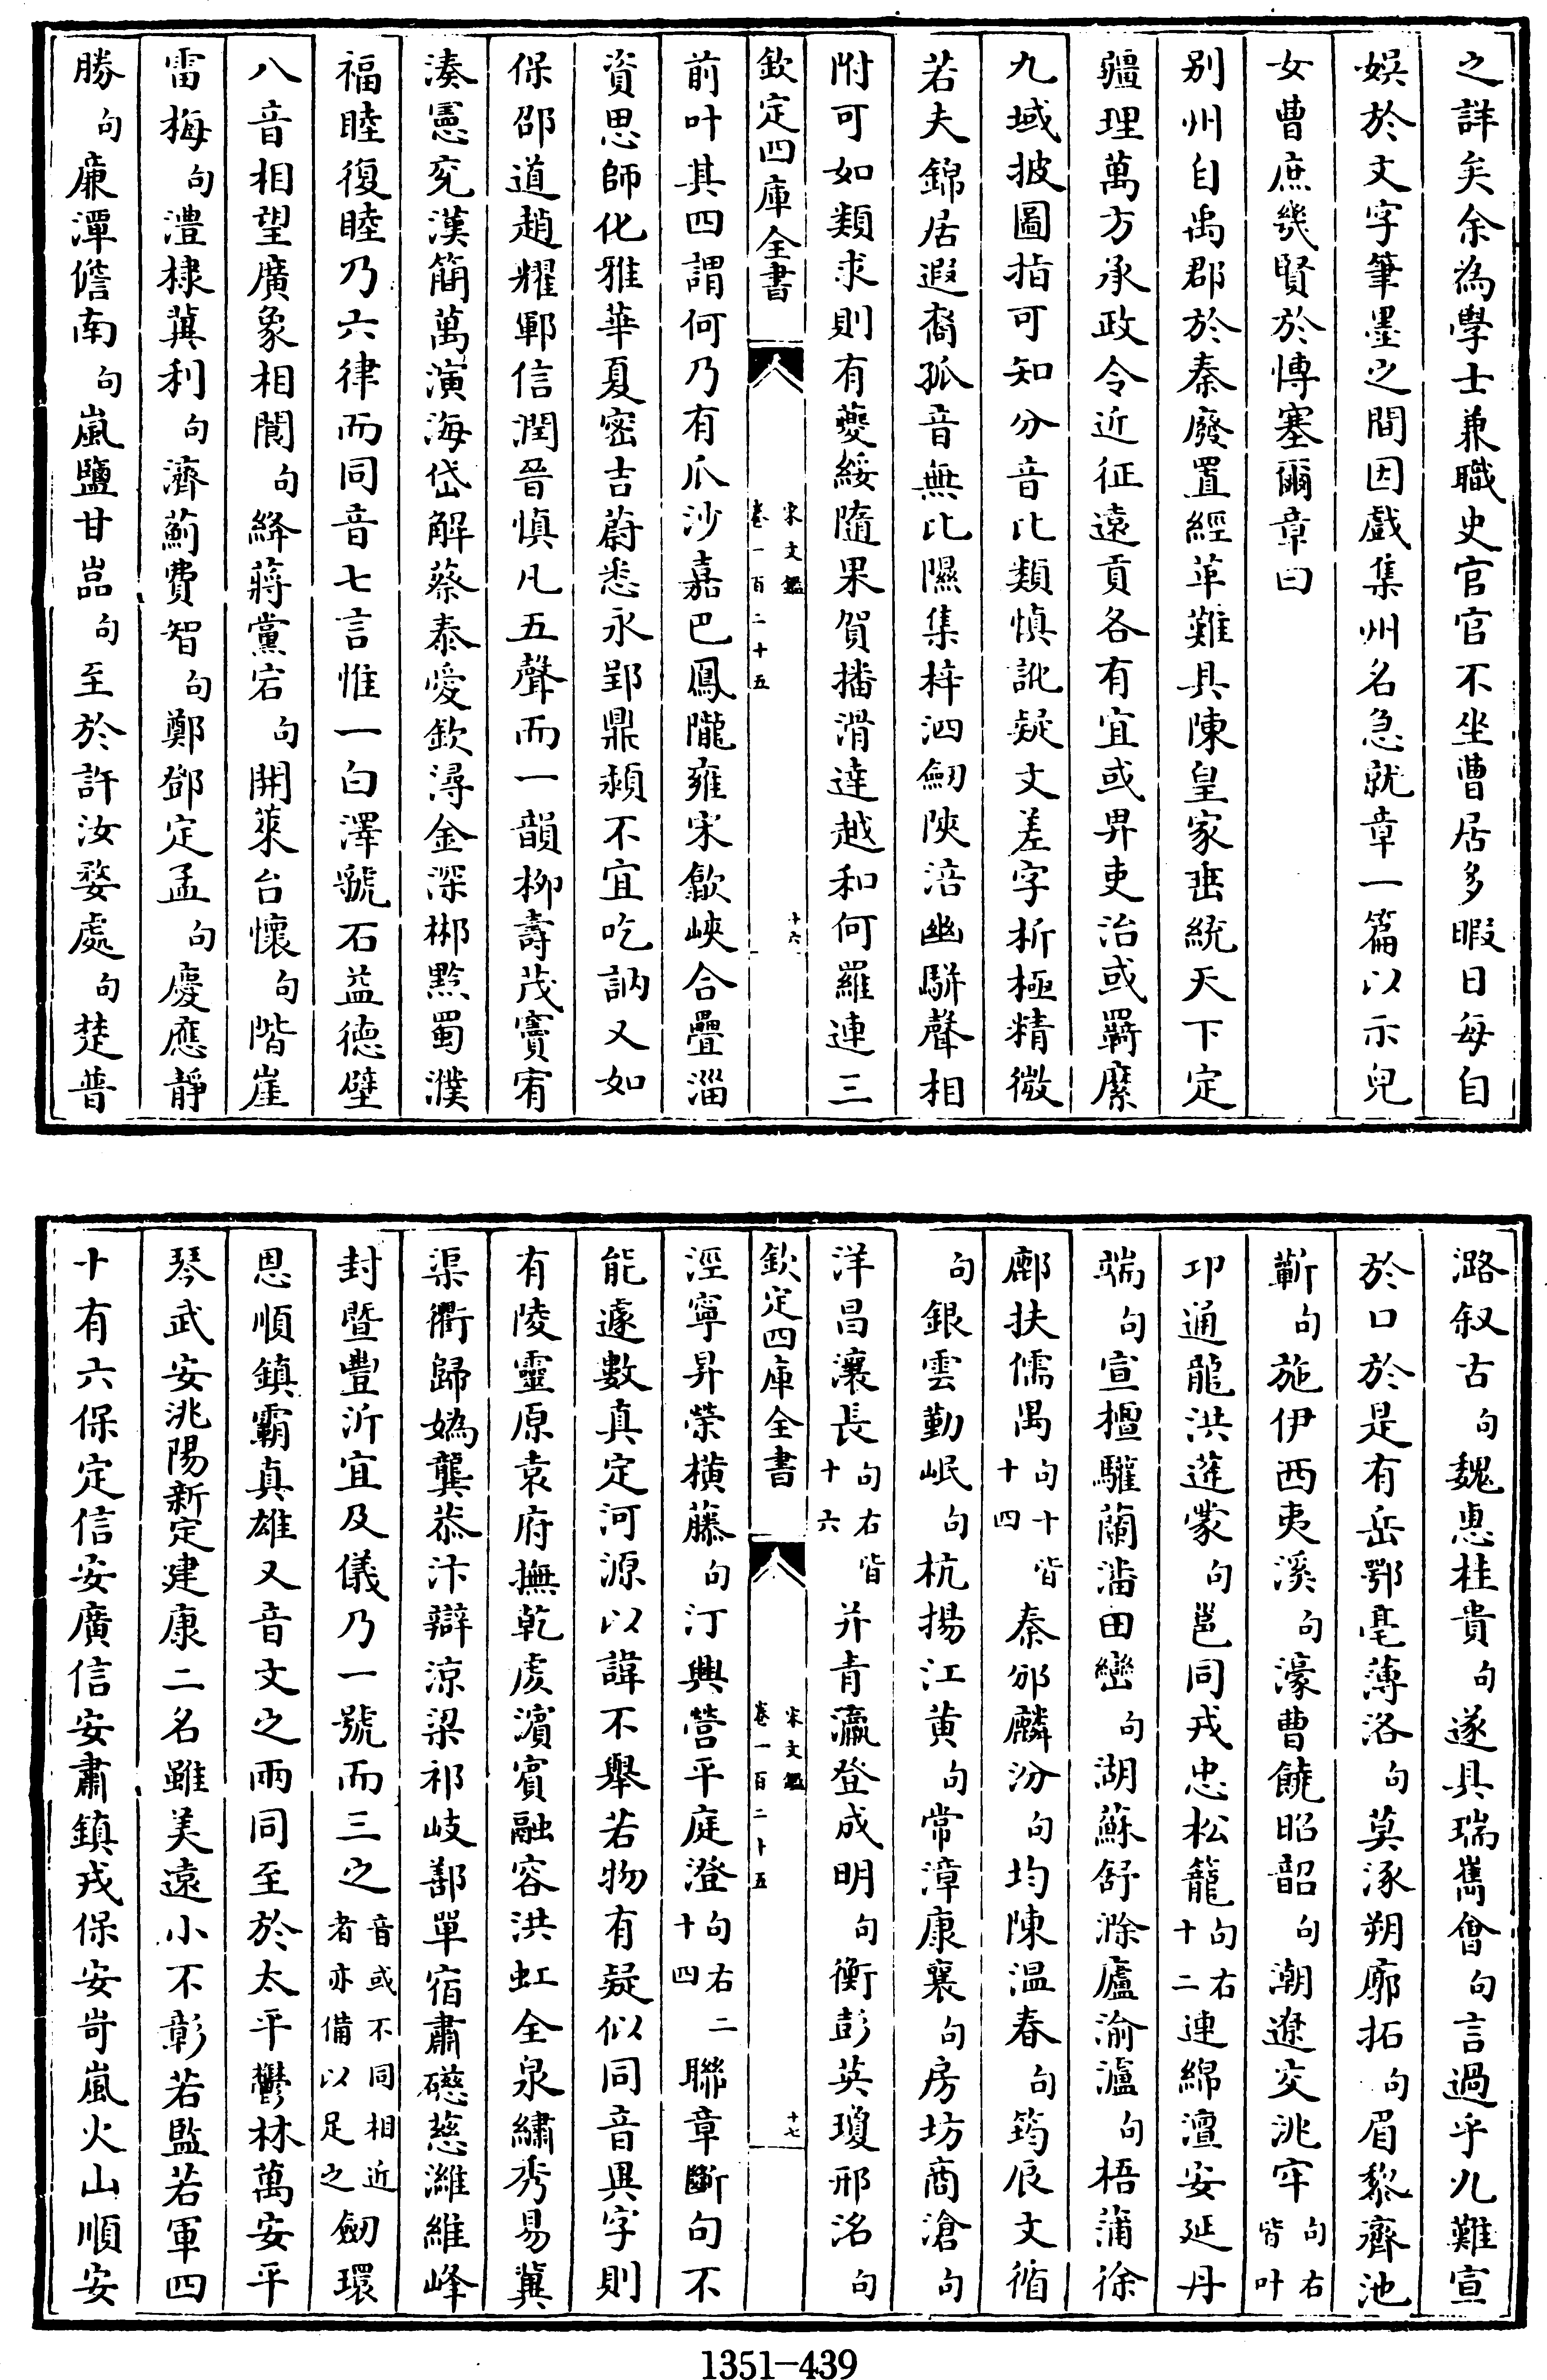 之詳矣余為學士兼職史官官不坐曹居多暇日每自
娛於文字筆墨之間因戲集州名急就章一篇以示兒
女曹庶幾賢於博塞爾章曰
别州自禹郡於秦廢置經革難具陳皇家垂統天下定
疆理萬方承政令近征遠貢各有宜或畀吏治或羇縻
九域披圖指可知分音比類慎訛疑文差字析極精微
若夫錦居遐裔孤音無比隰集梓泗劒陜涪幽駢聲相
附可如類求則有夔綏隨果賀播滑達越和何羅連三
欽定四庫全書
宋文鑑
卷一百二十五
十六
前叶其四謂何乃有爪沙嘉巴鳳隴雍宋歙峽合疊淄
資思師化雅華夏密吉蔚悉永郢鼎潁不宜吃訥又如
保邵道趙耀鄆信潤晉慎凡五聲而一韻柳壽茂竇宥
湊憲兖漢簡萬演海岱解蔡泰愛欽潯金深郴黔蜀濮
福睦復睦乃六律而同音七言惟一白澤虢石益德壁
八音相望廣象相閬句絳蔣黨宕句開萊台懷句階崖
雷梅句澧棣冀利句濟薊費智句鄭鄧定孟句慶應靜
勝句廉潭儋南句嵐鹽甘嵓句至於許汝婺處句楚普
潞叙古句魏惠桂貴句遂具瑞雟會句言過乎九難宣
於口於是有岳鄂亳薄洛句莫涿朔廓拓句眉黎齊池
蘄句施伊西夷溪句濠曹饒昭韶句潮遼交洮牢句右皆叶
卭通龍洪蓬蒙句邕同戎忠松籠句右十二連綿澶安延丹
端句宣檀驩蘭潘田巒句湖蘇舒滁廬渝瀘句梧蒲徐
鄜扶儒禺句十十四皆秦邠麟汾句均陳温春句筠辰文循
句銀雲勤岷句杭揚江黄句常漳康襄句房坊商滄句
洋昌瀼長句右十六皆并青瀛登成明句衡彭英瓊邢洺句
欽定四庫全書
宋文鑑
卷一百二十五
十七
涇寧昇榮橫藤句汀興營平庭澄句右十四二聯章斷句不
能遽數真定河源以諱不舉若物有疑似同音異字則
有陵靈原袁府撫乾虔濱賓融容洪虹全泉繡秀易冀
渠衢歸媯龔恭汴辯涼梁祁岐鄯單宿肅礠慈濰維峰
封暨豐沂宜及儀乃一號而三之音或不同相近者亦備以足之劒環
恩順鎮霸真雄又音文之兩同至於太平鬱林萬安平
琴武安洮陽新定建康二名雖美遠小不彰若監若軍四
十有六保定信安廣信安肅鎮戎保安岢嵐火山順安
1351-439